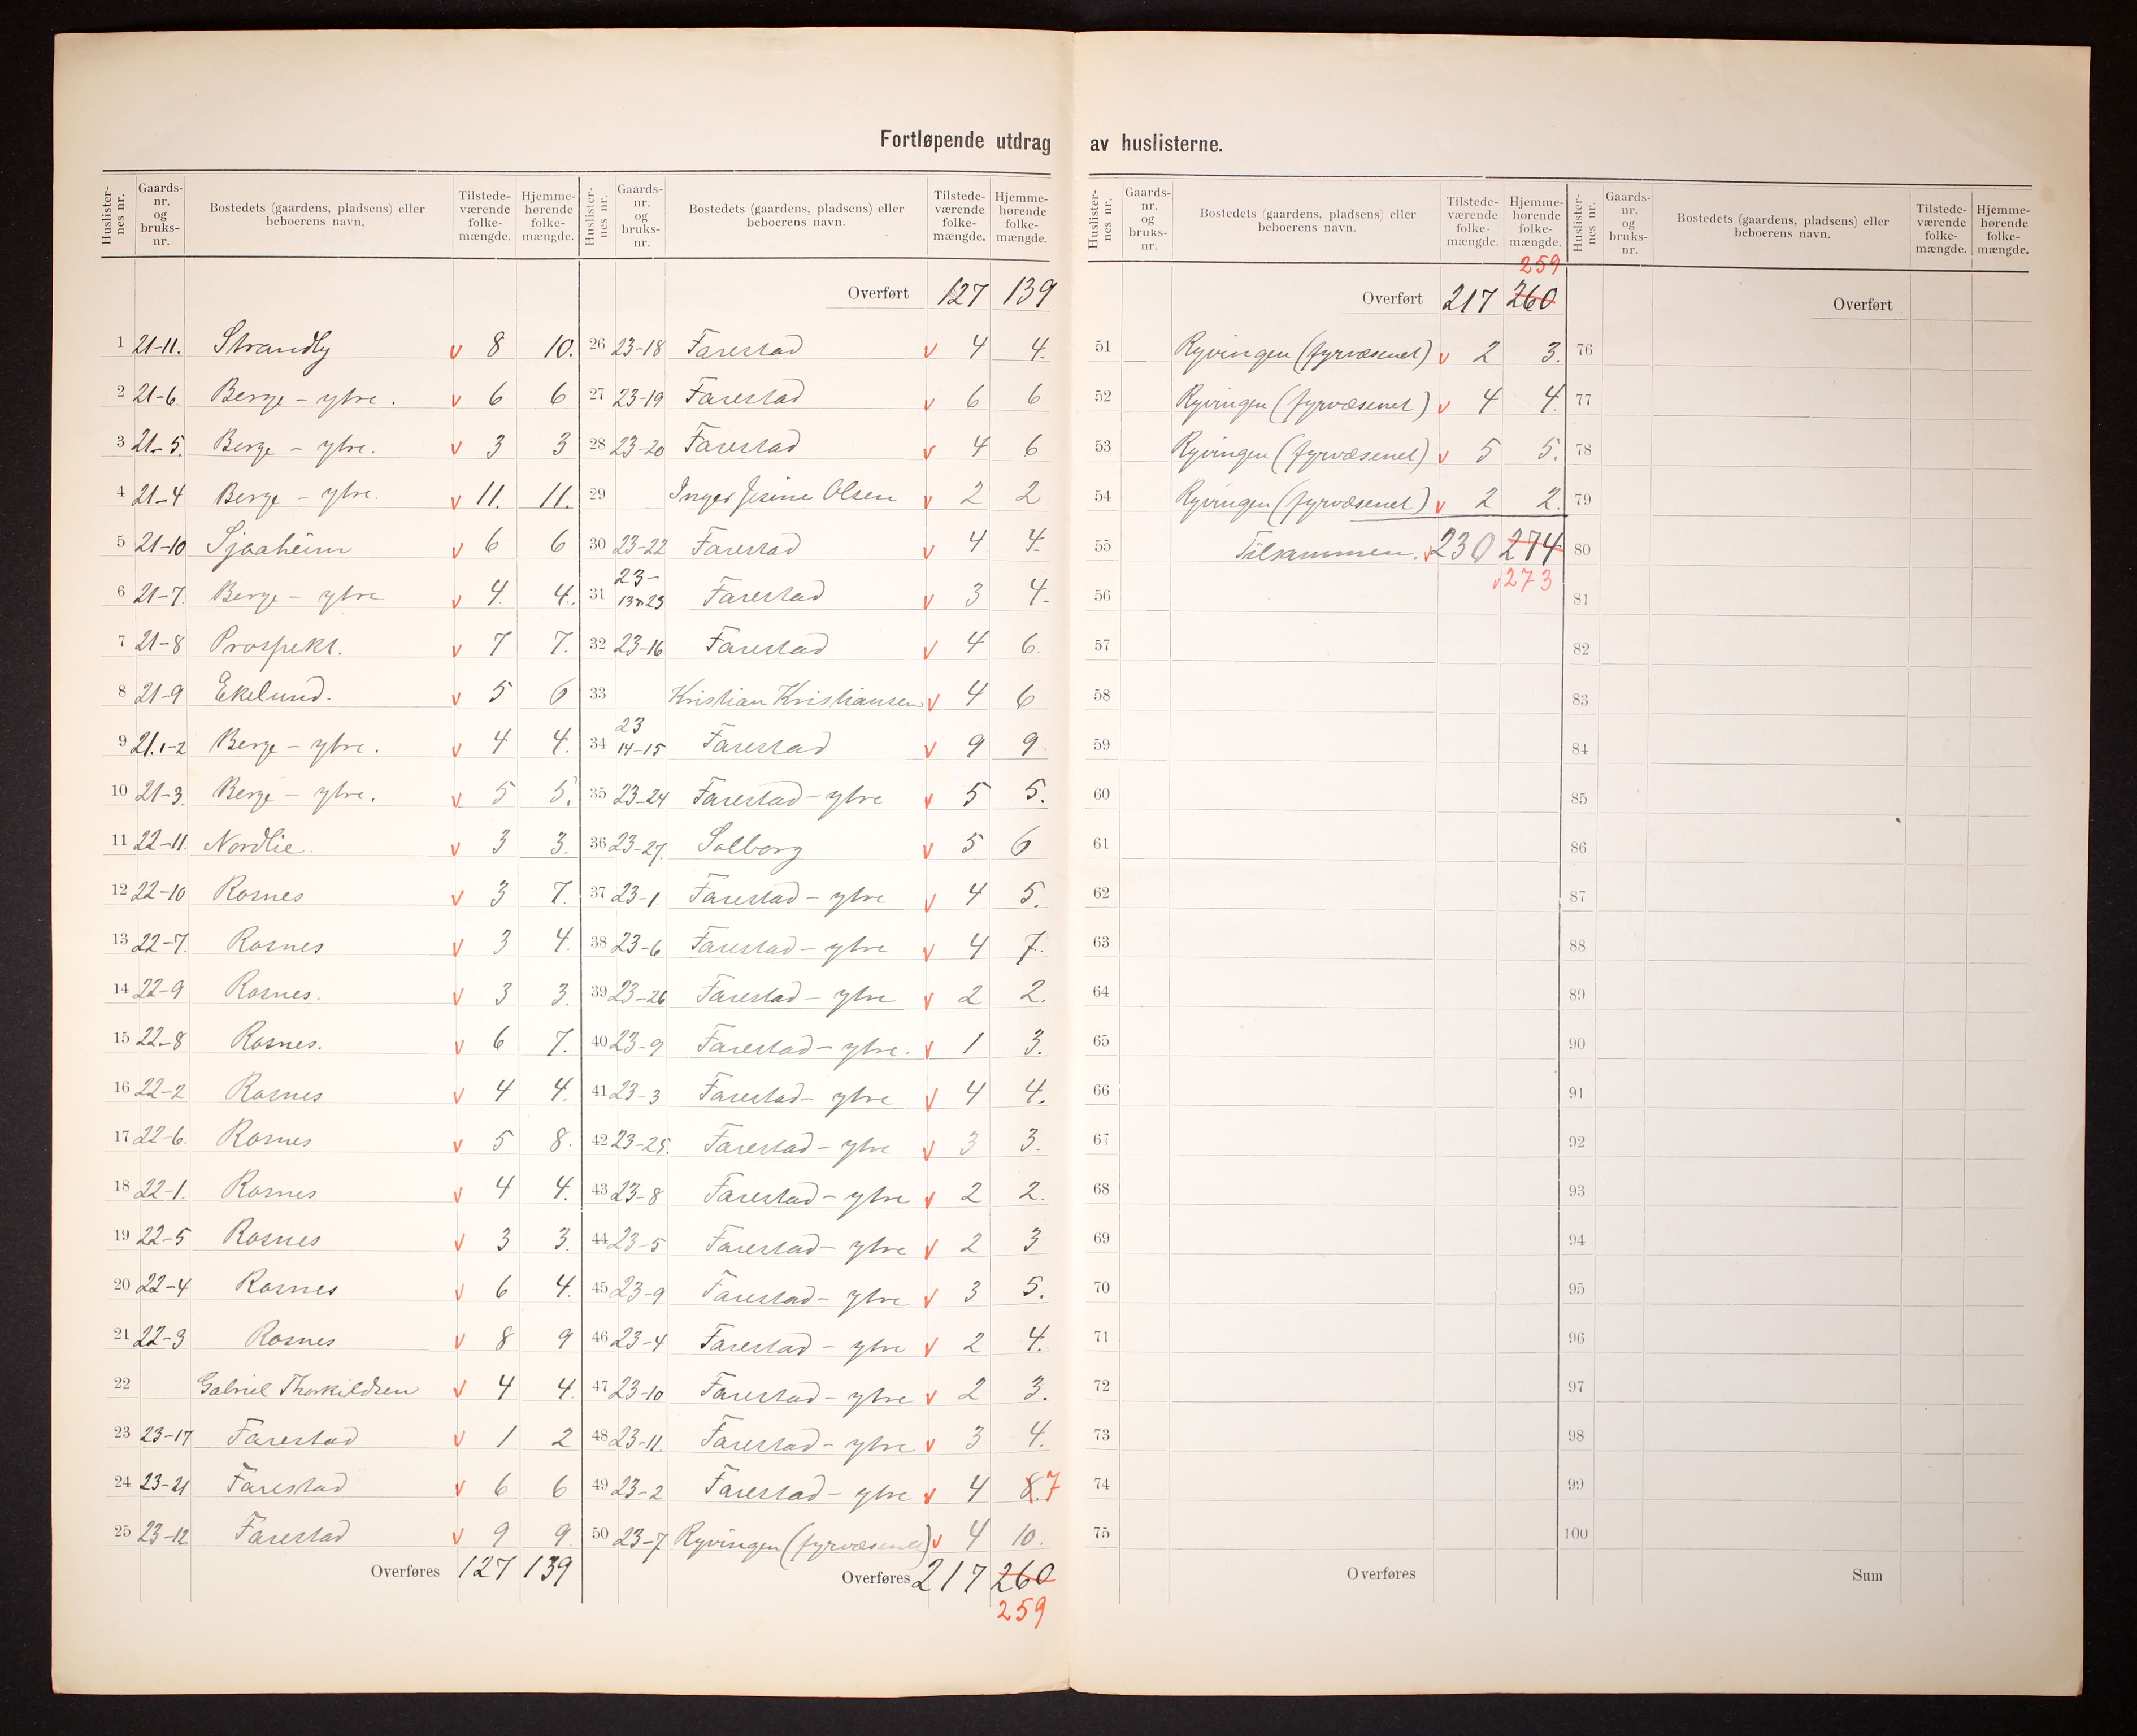 Fortløpende utdrag av huslisterne.
Huslister-nes nr. Gaards-nr. og bruks-nr. Bostedets (gaardens, pladsens) eller beboerens navn. Tilstede-værende folke-mængde. Hjemme-hørende folke-mængde.
1 21-11. Strandly v 8 10.
2 21-6 Berge - ytre. v 6 6
3 21-5. Berge - ytre. v 3 3
4 21-4 Berge - ytre. v 11. 11.
5 21-10 Sjaaheim v 6 6
6 21-7 Berge - ytre v 4. 4.
7 21-8 Prospekt. v 7 7.
8 21-9 Ekelund. v 5 6
9 21.1-2 Berge - ytre. v 4 4.
10 21-3. Berge - ytre. v 5 5.
11 22-11. Nordlie. v 3 3.
12 22-10 Rosnes v 3 7.
13 22-7. Rosnes v 3 4.
14 22-9 Rosnes. v 3 3.
15 22-8 Rosnes. v 6 7.
16 22-2 Rosnes v 4 4.
17 22-6. Rosnes v 5 8.
18 22-1. Rosnes v 4 4.
19 22-5 Rosnes v 3 3.
20 22-4 Rosnes v 6 4.
21 22-3 Rosnes v 8 9
22 Gabriel Thorkildsen v 4 4.
23 23-17 Farestad v 1 2
24 23-21 Farestad v 6 6
25 23-12 Farestad v 9 9
Overføres 127 139
Huslister-nes nr. Gaards-nr. og bruks-nr. Bostedets (gaardens, pladsens) eller beboerens navn. Tilstede-værende folke-mængde. Hjemme-hørende folke-mængde.
Overført 127 139
26 23-18 Farestad v 4 4.
27 23-19 Farestad v 6 6
28 23-20 Farestad v 4 6
29 Inger Jesine Olsen v 2 2
30 23-22 Farestad v 4 4.
31 23-13 23 Farestad v 3 4.
32 23-16 Farestad v 4 6.
33 Kristian Kristiansen v 4 6
34 23 14-15 Farestad v 9 9
35 23-24 Farestad - ytre v 5 5.
36 23-27. Solborg v 5 6
37 23-1. Farestad - ytre v 4 5.
38 23-6 Farestad - ytre v 4 7.
39 23-26 Farestad - ytre v 2 2.
40 23-9 Farestad - ytre. v 1 3.
41 23-3 Farestad - ytre v 4 4.
42 23-25. Farestad - ytre v 3 3.
43 23-8 Farestad - ytre v 2 2.
44 23-5 Farestad - ytre v 2 3
45 23-9 Farestad - ytre v 3 5.
46 23-4 Farestad - ytre v 2 4.
47 23-10 Farestad - ytre v 2 3.
48 23-11. Farestad - ytre v 3 4.
49 23-2 Farestad - ytre v 4 8. 7
50 23-7 Ryvingen (fyrvæsenet) v 4 10.
Overføres 217 260
259
Huslister-nes nr. Gaards-nr. og bruks-nr. Bostedets (gaardens, pladsens) eller beboerens navn. Tilstede-værende folke-mængde. Hjemme-hørende folke-mængde.
259
Overført 217 260
51 Ryvingen (fyrvæsenet) v 2 3.
52 Ryvingen (fyrvæsenet) v 4 4.
53 Ryvingen (fyrvæsenet) v 5 5.
54 Ryvingen (fyrvæsenet) v 2 2.
55 Tilsammen. v 230 274
56 v 273
57
58
59
60
61
62
63
64
65
66
67
68
69
70
71
72
73
74
75
Overføres
Huslister-nes nr. Gaards-nr. og bruks-nr. Bostedets (gaardens, pladsens) eller beboerens navn. Tilstede-værende folke-mængde. Hjemme-hørende folke-mængde.
Overført
76
77
78
79
80
81
82
83
84
85
86
87
88
89
90
91
92
93
94
95
96
97
98
99
100
Sum